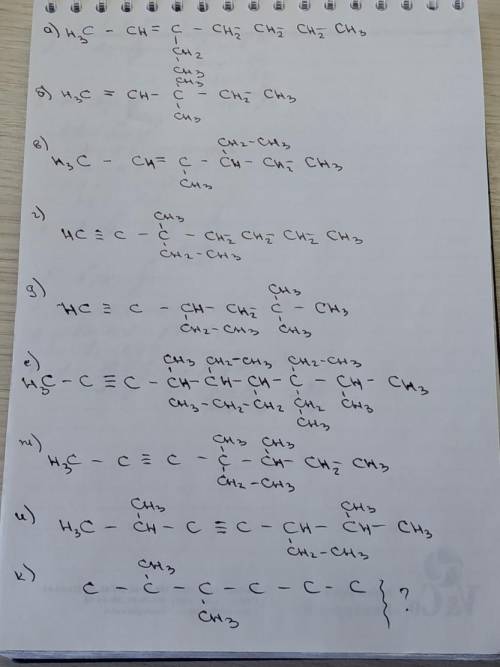 а) H₃C - CH = C - CH₂ - CH₂ - CH₂ - CH₃
CH₂
CH₃
CH₃
б) H₃C = CH - C - CH₂ - CH₃
CH₃
CH₂-CH₃
в) H₃C - CH = C - CH - CH₂ - CH₃
CH₃
CH₃
г) HC ≡ C - C - CH₂ - CH₂ - CH₂ - CH₃
CH₂-CH₃
CH₃
д) HC ≡ C - CH - CH₂ - C - CH₃
CH₂-CH₃ CH₃
CH₃ CH₂-CH₃ CH₂-CH₃
е) H₃C - C ≡ C - CH - CH - CH - C - CH - CH₃
CH₃-CH₂-CH₂ CH₂ CH₃
CH₃
CH₃ CH₃
ж) H₃C - C ≡ C - C - CH - CH₂ - CH₃
CH₂-CH₃
CH₃ CH₃
и) H₃C - CH - C ≡ C - CH - CH - CH₃
CH₂-CH₃
CH₃
к) C - C - C - C - C - C } ?
CH₃